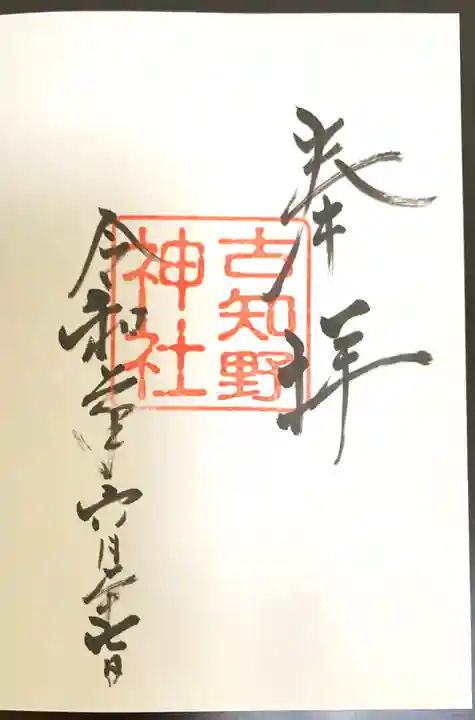 奉拝
古知野
神社
令和 六月 七日